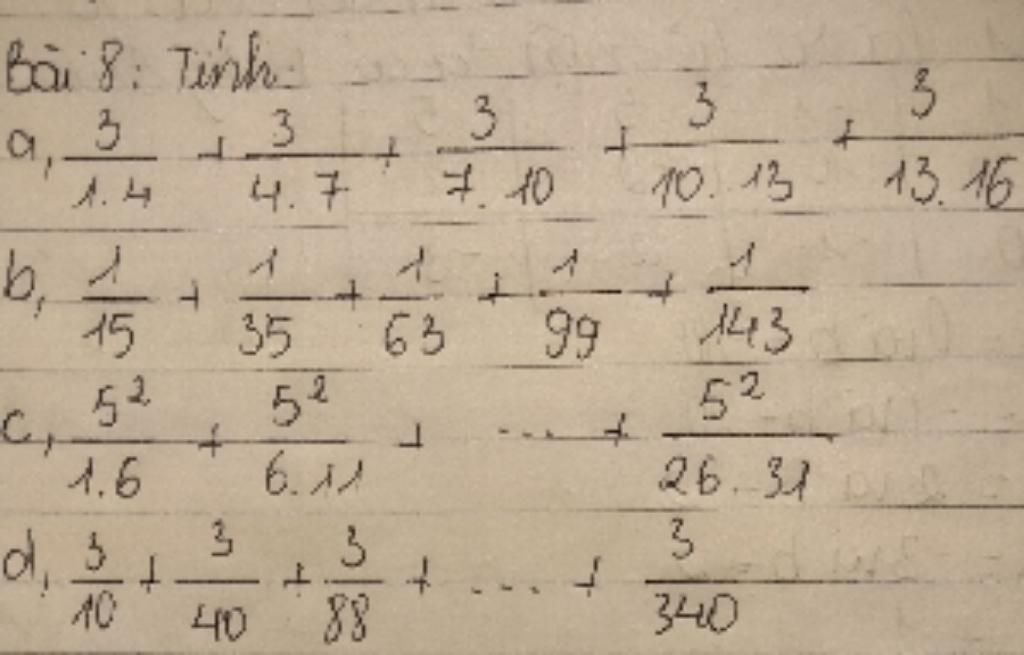 Bài 8: Tính
a, 3/1.4 + 3/4.7 + 3/7.10 + 3/10.13 + 3/13.16
b, 1/15 + 1/35 + 1/63 + 1/99 + 1/143
c, 5²/1.6 + 5²/6.11 + ... + 5²/26.31
d, 3/10 + 3/40 + 3/88 + ... + 3/340